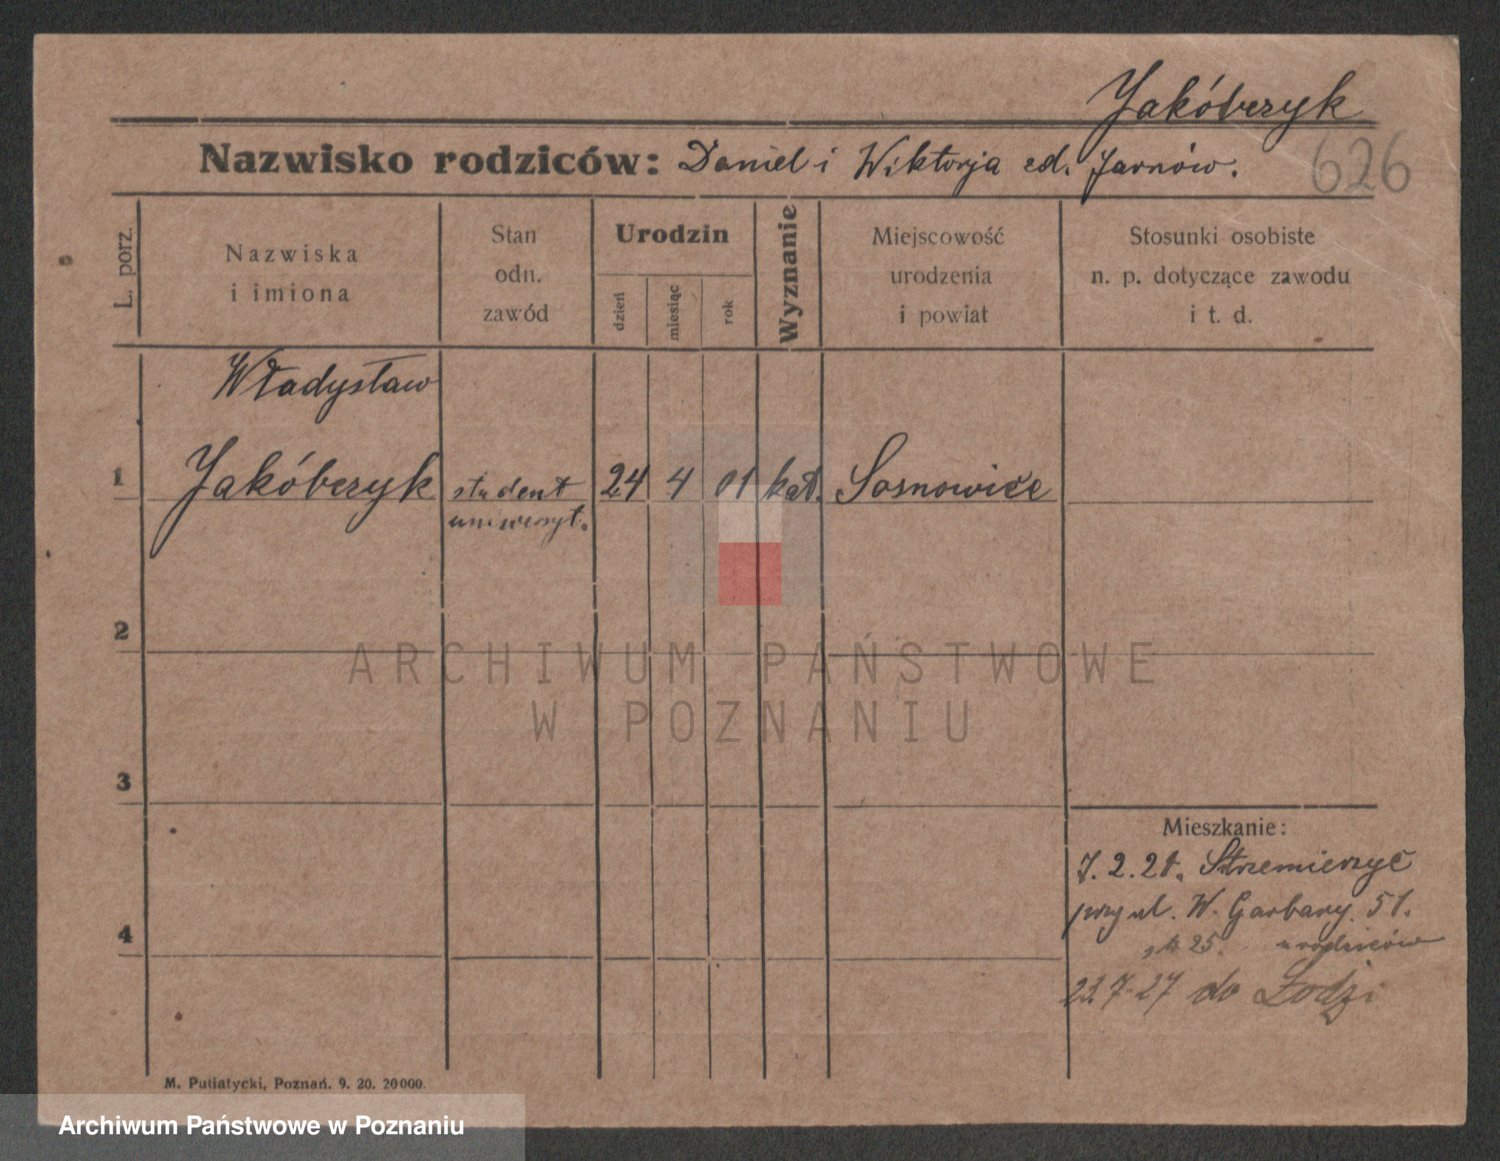 Jakóbczyk
Nazwisko rodziców: Daniel i Wiktorja zd. Jarnów.
626
L. porz.
Nazwiska
i imiona
Stan
odn.
zawód
Urodzin
dzień
miesiąc
rok
Wyznanie
Miejscowość
urodzenia
i powiat
Stosunki osobiste
n. p. dotyczące zawodu
i t. d.
Władysław
1 Jakóbczyk student 24 4 01 kat. Sosnowice
uniwersyt.
2
3
4
Mieszkanie:
7. 2. 21. Strzemierzyc
przy ul. W. Garbary 51.
25. u rodziców
23.7-27 do Łodzi
M. Putiatycki, Poznań. 9. 20. 20000.
ARCHIWUM PAŃSTWOWE
W POZNANIU
Archiwum Państwowe w Poznaniu